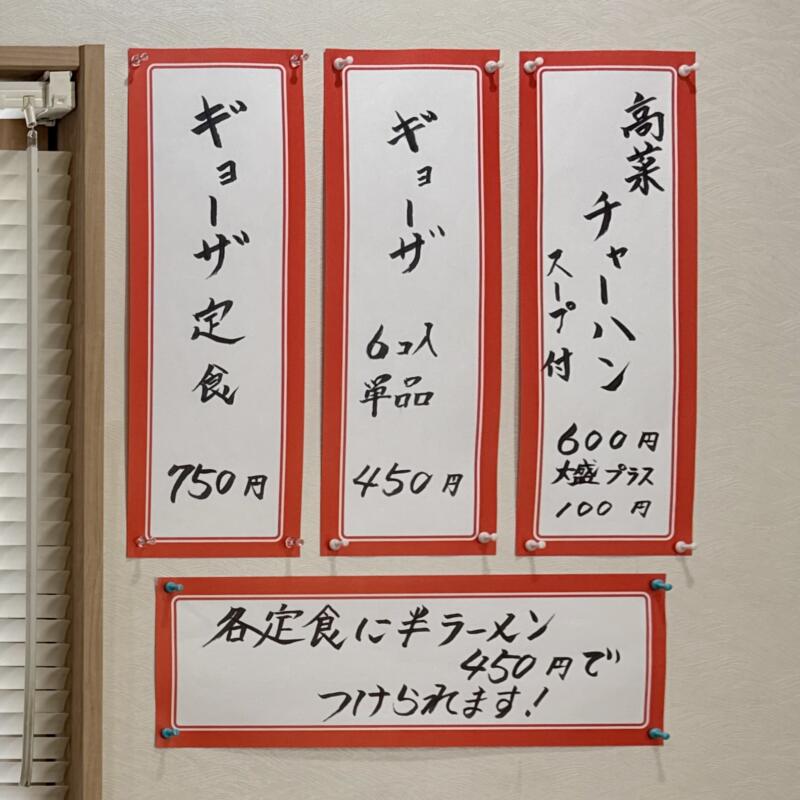 高菜
チャーハン
スープ付
600円
大盛プラス
100円
ギョーザ
6コ入
単品
450円
ギョーザ定食
750円
各定食に半ラーメン
450円で
つけられます!